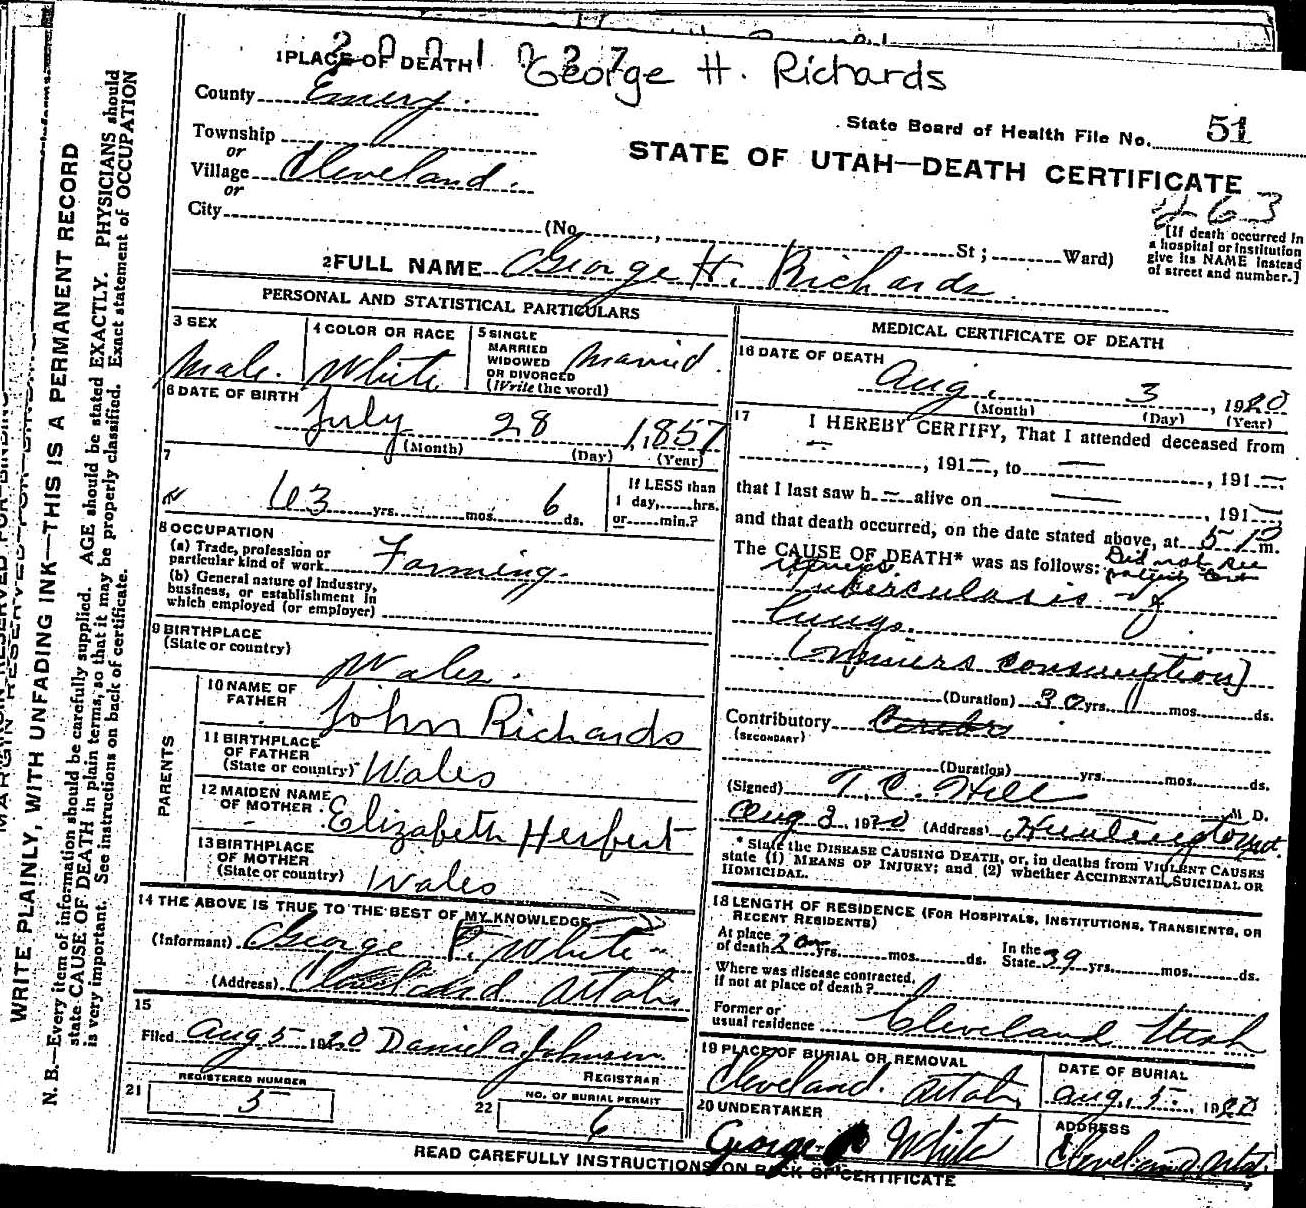 1 PLACE OF DEATH George H. Richards
County Emery.
State Board of Health File No. 51
Township
or
Village Cleveland.
or
City
STATE OF UTAH—DEATH CERTIFICATE
263
(No. , St; Ward)
[If death occurred in
a hospital or institution
give its NAME instead
of street and number.]
2 FULL NAME George H. Richards.
PERSONAL AND STATISTICAL PARTICULARS
3 SEX
Male.
4 COLOR OR RACE
White
5 SINGLE
MARRIED
WIDOWED
OR DIVORCED
(Write the word)
Married.
6 DATE OF BIRTH
July 28, 1857
(Month) (Day) (Year)
7
63 yrs. mos. 6 ds.
If LESS than
1 day, hrs.
or min.?
8 OCCUPATION
(a) Trade, profession or
particular kind of work Farming.
(b) General nature of industry,
business, or establishment in
which employed (or employer)
9 BIRTHPLACE
(State or country)
Wales.
PARENTS
10 NAME OF
FATHER
John Richards
11 BIRTHPLACE
OF FATHER
(State or country)
Wales
12 MAIDEN NAME
OF MOTHER
Elizabeth Herbert
13 BIRTHPLACE
OF MOTHER
(State or country)
Wales
14 THE ABOVE IS TRUE TO THE BEST OF MY KNOWLEDGE
(Informant) George P. White
(Address) Cleveland Utah
15
Filed Aug 5 1920 Daniel A Johnson.
REGISTRAR
21 REGISTERED NUMBER
5
22 NO. OF BURIAL PERMIT
6
MEDICAL CERTIFICATE OF DEATH
16 DATE OF DEATH
Aug. 3, 1920
(Month) (Day) (Year)
17 I HEREBY CERTIFY, That I attended deceased from
— , 191—, to — , 191—
that I last saw h — alive on — , 191—
and that death occurred, on the date stated above, at 5 P m.
The CAUSE OF DEATH* was as follows: Did not see
patient
tuberculosis of
lungs.
(miners consumption)
(Duration) 30 yrs. mos. ds.
Contributory
(SECONDARY)
(Duration) yrs. mos. ds.
(Signed) T. C. Hill M D.
Aug 3, 1920 (Address) Huntington Ut.
* State the DISEASE CAUSING DEATH, or, in deaths from VIOLENT CAUSES
state (1) MEANS OF INJURY; and (2) whether ACCIDENTAL, SUICIDAL OR
HOMICIDAL.
18 LENGTH OF RESIDENCE (FOR HOSPITALS, INSTITUTIONS, TRANSIENTS, OR
RECENT RESIDENTS)
At place
of death 20 yrs. mos. ds.
In the
State 39 yrs. mos. ds.
Where was disease contracted,
if not at place of death?
Former or
usual residence Cleveland Utah
19 PLACE OF BURIAL OR REMOVAL
Cleveland. Utah.
DATE OF BURIAL
Aug. 5. 1920
20 UNDERTAKER
George White
ADDRESS
Cleveland, Utah.
READ CAREFULLY INSTRUCTIONS ON BACK OF CERTIFICATE
WRITE PLAINLY, WITH UNFADING INK—THIS IS A PERMANENT RECORD
N. B.—Every item of information should be carefully supplied. AGE should be stated EXACTLY. PHYSICIANS should
state CAUSE OF DEATH in plain terms, so that it may be properly classified. Exact statement of OCCUPATION
is very important. See instructions on back of certificate.